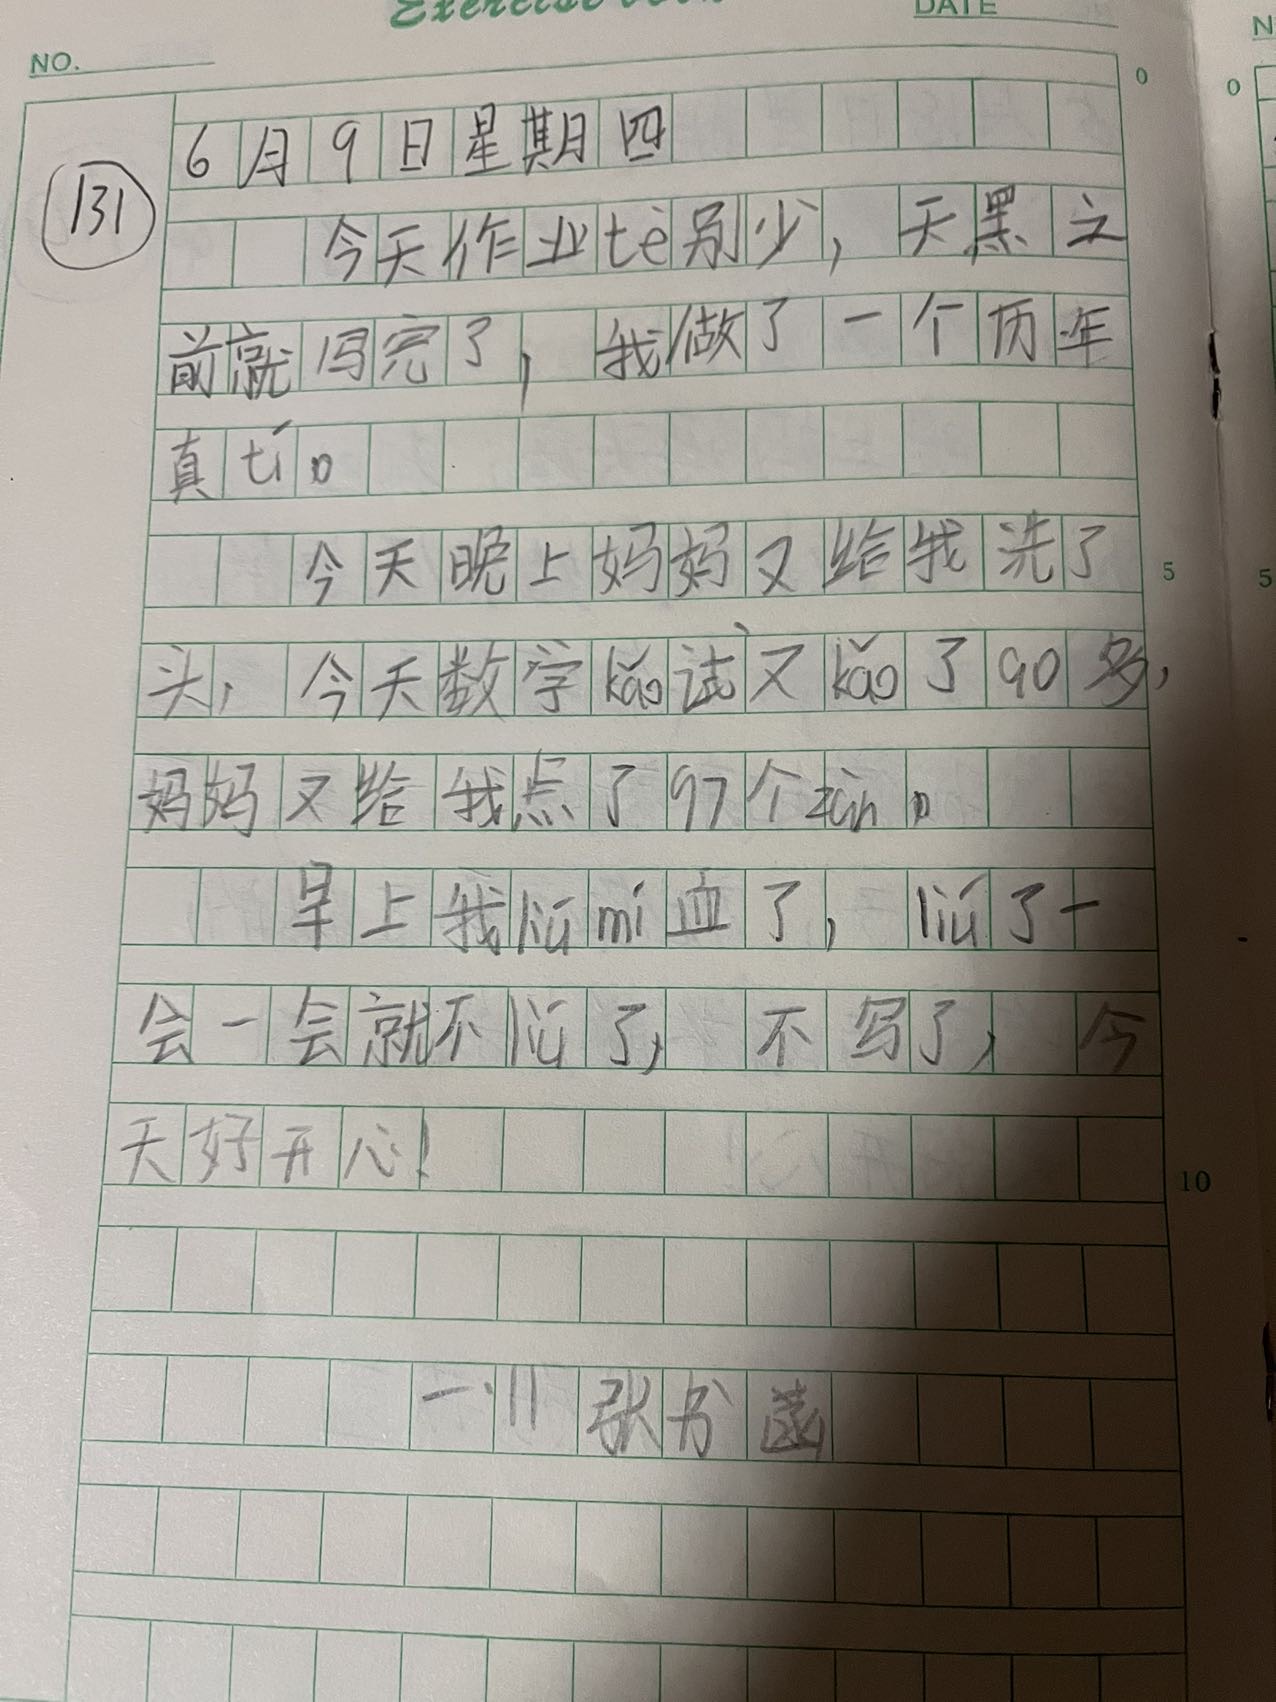 Exercise book
DATE
NO.
131
6月9日星期四
今天作业tè别少,天黑之
前就写完了,我做了一个历年
真tí。
今天晚上妈妈又给我洗了
头,今天数学kǎo试又kǎo了90多,
妈妈又给我点了97个zàn。
早上我liú mí血了,liú了一
会一会就不liú了,不写了,今
天好开心!
一.11 张书菡
0
5
10
0
5